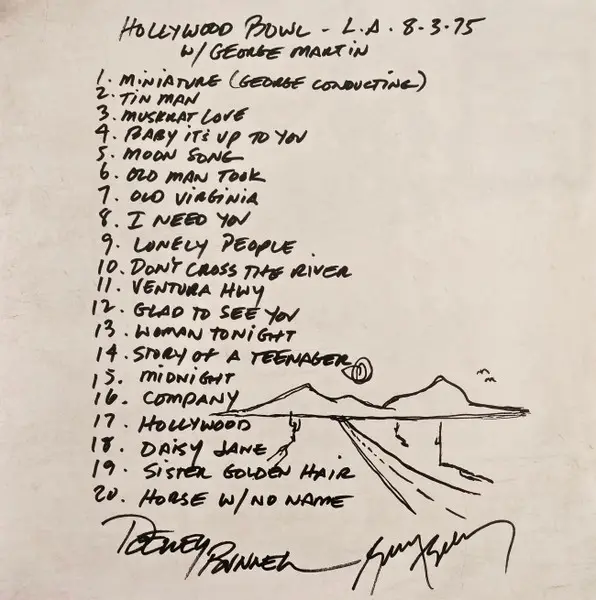 HOLLYWOOD BOWL - L.A. 8-3-75
W/ GEORGE MARTIN
1. MINIATURE (GEORGE CONDUCTING)
2. TIN MAN
3. MUSKRAT LOVE
4. BABY IT'S UP TO YOU
5. MOON SONG
6. OLD MAN TOOK
7. OLD VIRGINIA
8. I NEED YOU
9. LONELY PEOPLE
10. DON'T CROSS THE RIVER
11. VENTURA HWY
12. GLAD TO SEE YOU
13. WOMAN TONIGHT
14. STORY OF A TEENAGER
15. MIDNIGHT
16. COMPANY
17. HOLLYWOOD
18. DAISY JANE
19. SISTER GOLDEN HAIR
20. HORSE W/ NO NAME
DEWEY BUNNELL